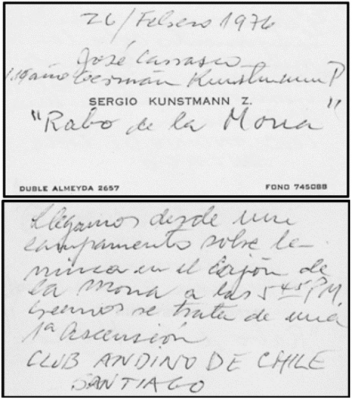 26/Febrero 1976
José Carrasco
Germán Kunstmann P
SERGIO KUNSTMANN Z.
"Rabo de la Mona"
DUBLE ALMEYDA 2657 FONO 745088
Llegamos desde un
campamento sobre la
nieve en el Cajón de
la Mona a las 5 45 P.M.
creemos se trata de una
1ª Ascensión
CLUB ANDINO DE CHILE
SANTIAGO